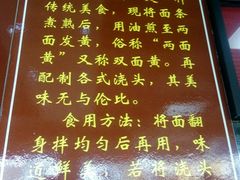 传统美食，现将面条
煮熟后，用油煎至两
面发黄，俗称“两面
黄”又称双面黄。再
配制各式浇头，其美
味无与伦比。
食用方法：将面翻
身拌均匀后再用，味
道鲜美，若将浇头